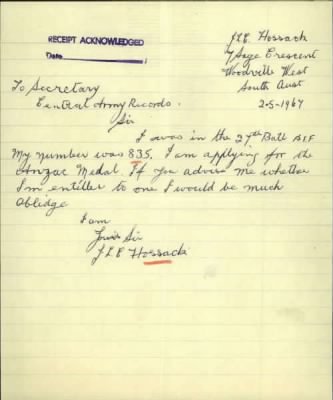 RECEIPT ACKNOWLEDGED
J.L.E. Hossack
7 Sage Crescent
Woodville West
South Aust
2-5-1967
To Secretary
Central Army Records.
Sir
I was in the 27th Batt AIF
My number was 835. I am applying for the
Anzac Medal. If you advise me whether
I'm entitled to one I would be much
Obledge
I am
Yours Sir
J L E Hossack